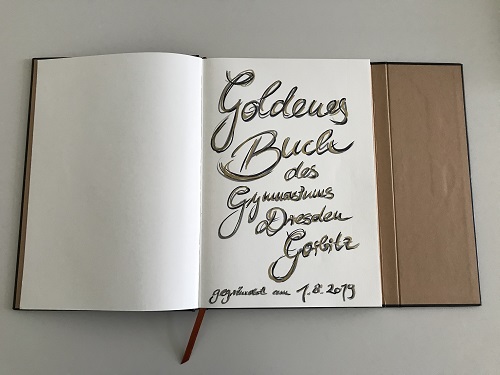 Goldenes
Buch
des
Gymnasiums
Dresden
Gorbitz
gegründet am 1.8.2019